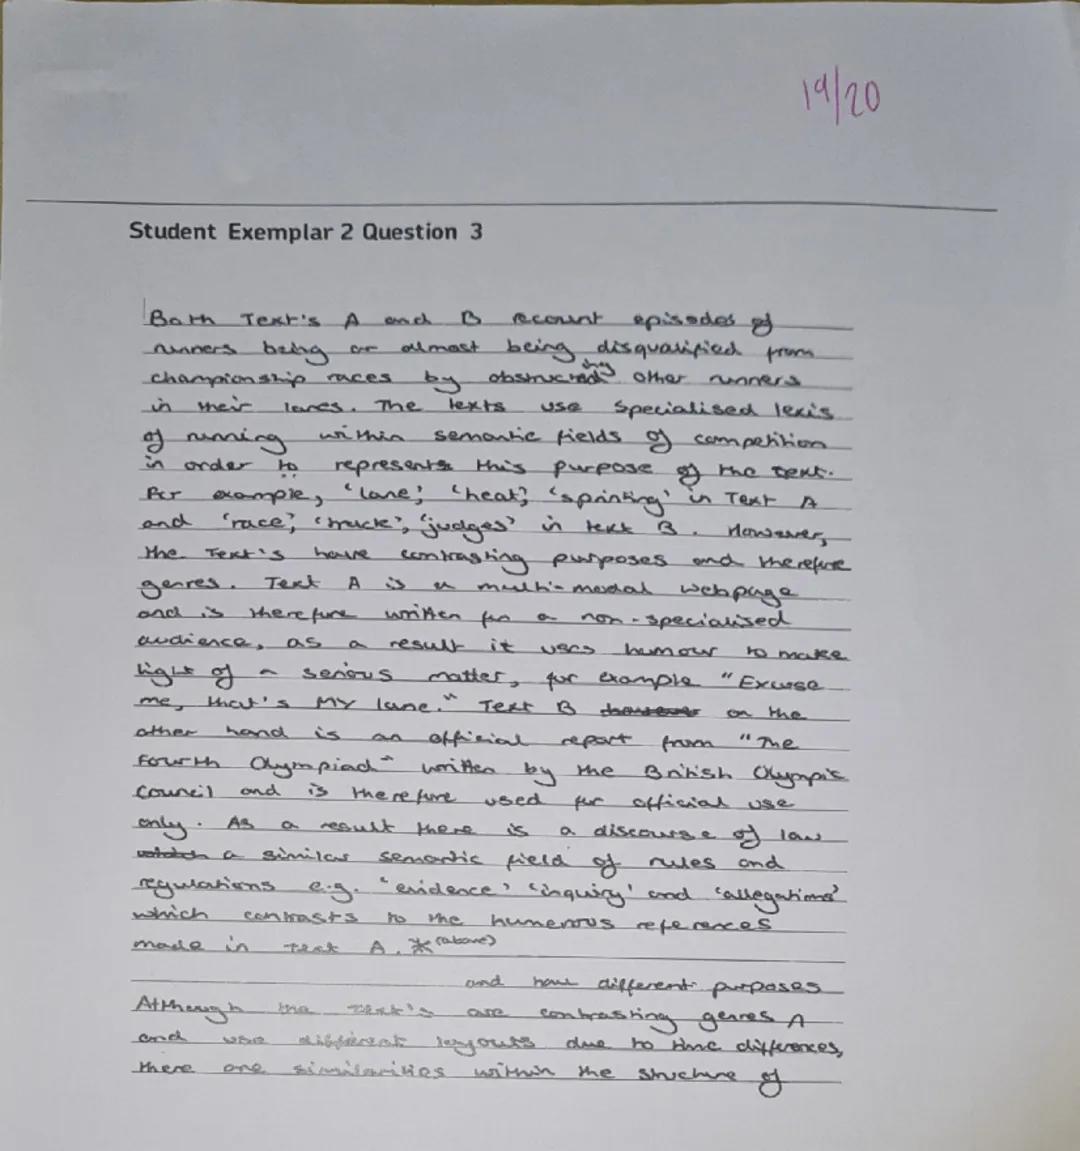 19/20
Student Exemplar 2 Question 3
Both Text's A and B recount episodes of
runners being or almost being disqualified from
championship races by obstructing other runners
in their lanes. The texts use specialised lexis
of running within semantic fields of competition
in order to represents this purpose of the text.
For example, 'lane', 'heat', 'sprinting' in Text A
and 'race', 'track', 'judges' in text B. However,
the Text's have contrasting purposes and therefore
genres. Text A is a multi-modal webpage
and is therefore written for a non-specialised
audience, as a result it uses humour to make
light of a serious matter, for example "Excuse
me, that's MY lane." Text B on the
other hand is an official report from "The
Fourth Olympiad" written by the British Olympic
Council and is therefore used for official use
only. As a result there is a discourse of law
a similar semantic field of rules and
regulations e.g. 'evidence' 'inquiry' and 'allegations'
which contrasts to the humerous references
made in text A. * (above)
and have different purposes
Although the Text's are contrasting genres ^
and use different layouts due to time differences,
there are similarities within the structure of